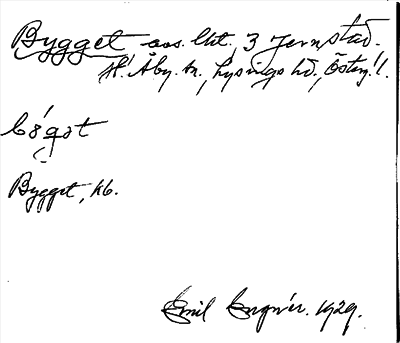 Bygget, oos. lht., 3 Jernstad.
H. Åby. sn., Lysings hd., Östergl.
b8́gət
Bygget, kb.
Emil Engnér. 1929.